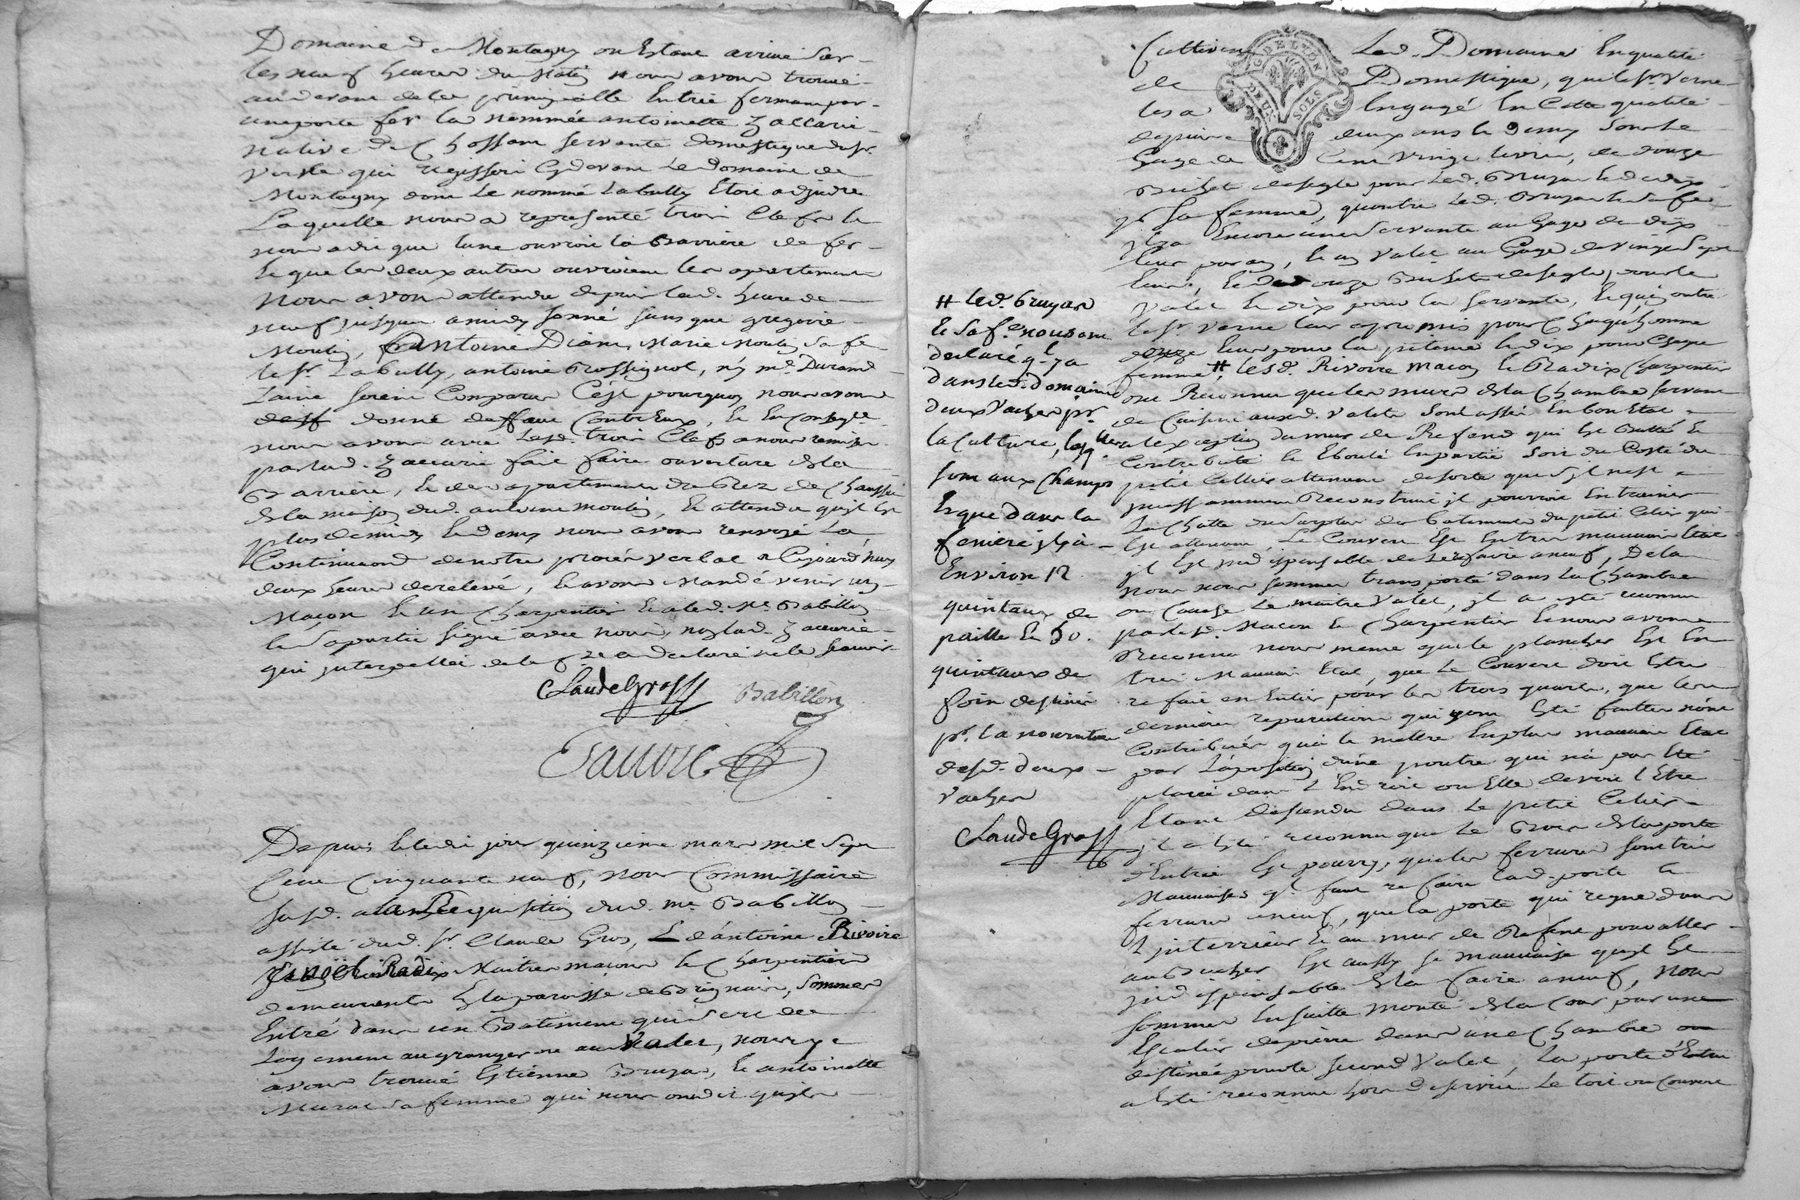 Domaine de Montagny ou Estant arrivé sur
les neuf heures du Matin nous avons trouvé
au devant de la principalle Entrée fermant par
une porte fer la nommée antoinette Zaccarie
native de Chossans servante domestique du Sr
qui regissoit Cydevant le domaine de
Montagny dont le nommé Labully Etoit adjudre
Laquelle nous a representé trois Clefs &
nous a dit que lune ouvroit la Barriere de fer
& que les deux autres ouvroient les apartements
Nous avons attendu depuis lad. heure de
neuf jusqua a midy sonné sans que gregoire
Moutin, Antoine Diany Marie Moutin sa fe
le Sr Labully, antoine Rossignol, ny me Durand
Laine soient Comparus C'est pourquoy nous avons
donné deffaut Contr'Eux, & En Conseqce
nous avons avec Lesd. trois Clefs a nous remises
par lad. Zaccarie fait faire ouverture de la
Barriere, & des apartements du Rez de Chaussée
de la maison dud. antoine Moutin, & attendu quil Est
plus de midy & demy nous avons renvoyé La
Continuaon de notre procès verbal a Cejourd'huy
deux heures de relevé, & avons Mandé venir un
Macon & un Charpentier & a led. Me Babillon
& sa partie signé avec nous, non lad. Zaccarie
qui interpellée de le fre a declaré ne le scavoir
Claude Gros Babillon
Sauvre
Depuis ledi jour quinzieme mars mil Sept
Cent Cinquante neuf, nous Commissaire
susd. a la Requisition dud. me Babillon
assisté dud. Sr Claude Gros, & d'antoine Rivoire
& noel Radix Maitres macon & Charpentier
demeurants En la paroisse de Brignais, sommes
Entré dans un Batiment qui sert de
Logement au granger ou au Valet, nous y
avons trouvé Estienne Bruyas, & antoinette
Murat sa femme qui nous ont dit quils
Cultivent Led. Domaine En qualité
de Domestique, que le Sr Verne
les a Engagé En Cette qualité
depuis deux ans & demy sous le
Gage de Cent vingt livres, de douze
Bichets de seigle pour Led. Bruyas & de dix
pr sa femme, quoutre Led. Bruyas & sa fe
il y a Encore une Servante au Gage de dix
Ecus par an, & un Valet au Gage de vingt Sept
Livres, & de douze Bichets de seigle pour le
Valet & dix pour la servante, & quen outre
le Sr Verne leur a promis pour Chaque homme
douze livres pour la pitance & dix pour Chaque
femme # Lesd. Rivoire macon & Radix Charpentier
ont Reconnu que les murs de la Chambre servant
de Cuisine auxd. valets sont assés En bon Etat
a lexception du mur de Refend qui Est
& Eboulé En partie soit du Costé du
petit Cellier attenant de sorte que sil nest
incessamment Reconstruit il pourroit Entrainer
La Chutte du surplus des batiments du petit Celier qui
Est attenant, Le Couvert Est En tres mauvais Etat
il Est indispensable de le refaire a neuf, De la
nous nous sommes transporté dans la Chambre
ou Couche Le maitre Valet, il a eté reconnu
par lesd. Macon & Charpentier & nous avons
Reconnu nous meme que le plancher Est En
tres Mauvais Etat, que Le Couvert doit Estre
refait en Entier pour les trois quarts, que les
dernieres reparations qui y ont Esté faittes nont
Contribués qua le mettre En plus mauvais Etat
par Laposition dune poutre qui na pas Eté
placée dans l'Endroit ou Elle devroit l'Etre
Etant descendu dans Le petit Celier
il a Esté reconnu que Le Bois de la porte
d'Entrée Est pourry, que les ferrures sont tres
Mauvaises ql faut refaire lad. porte &
ferrure a neuf, que la porte qui regne dans
L'interrieur & au mur de Refend pour aller
au Bucher Est aussy si mauvaise quil Est
indispensable de la faire a neuf, nous
sommes Ensuitte monté de la Cour par une
Escalier de pierre dans une Chambre
destinée pour le second Valet, La porte d'Entrée
a Esté reconnue hors de service Le toit ou Couvert
# led. bruyas
& sa fe nous ont
declaré ql y a
dans led. domaine
deux Vaches pr
la Culture,
sont aux Champs
Et que dans la
feniere il y a
Environ 12
quintaux de
paille & 50.
quintaux de
foin destinés
pr. la nourriture
desd. deux
vaches
Claude Gros
G. DE LYON
DEUX SOLS